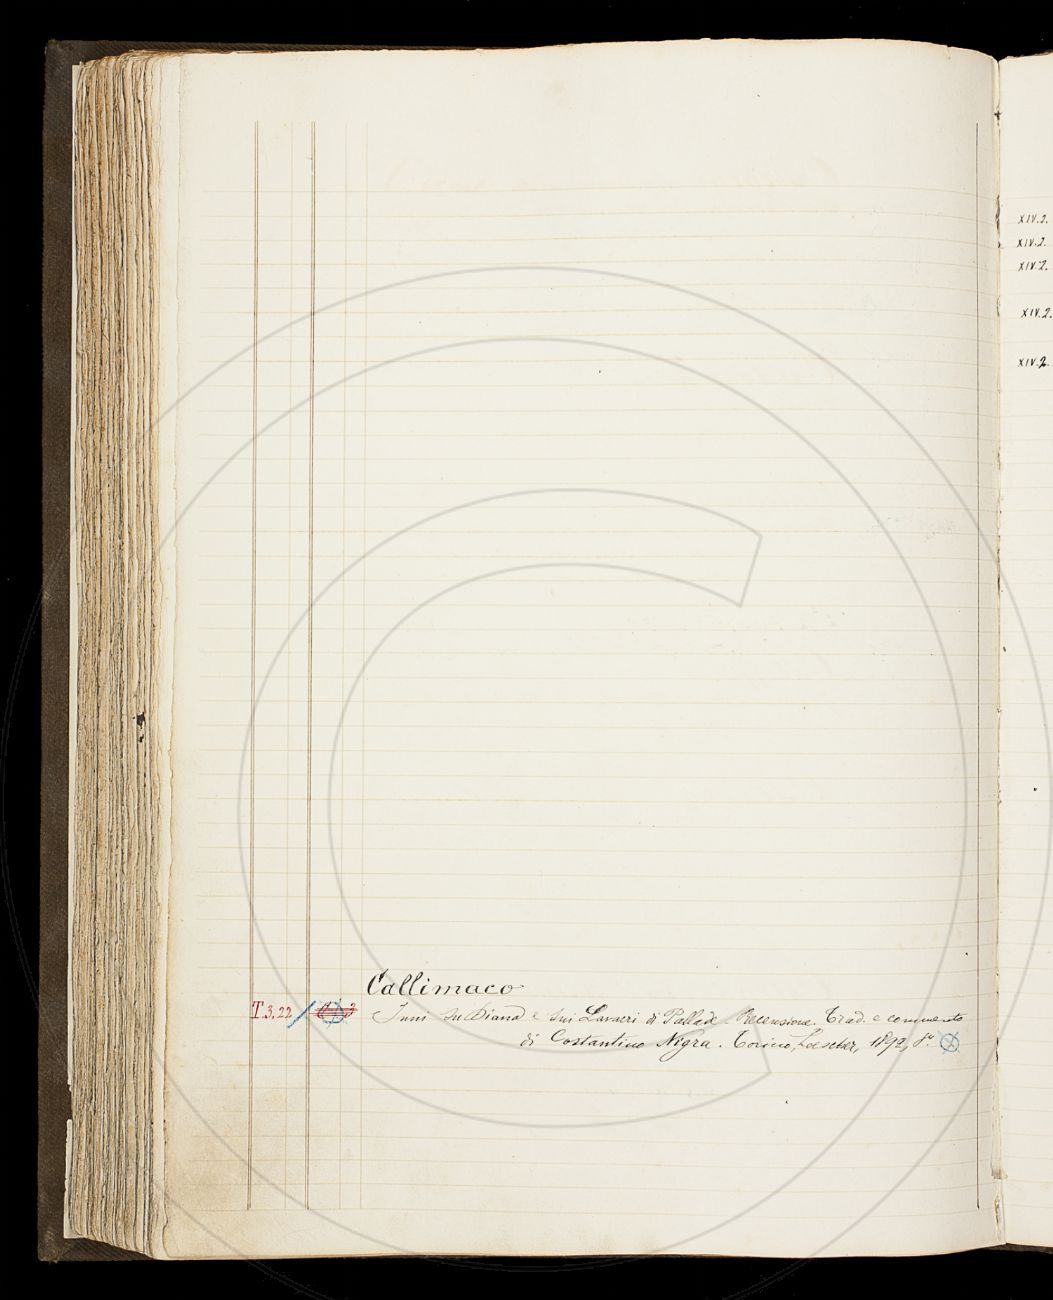 Callimaco
T.3.22 Inni su Diana e sui Lavacri di Pallade. Recensione. Trad. e commento
di Costantino Nigra. Torino, Loescher, 1892, 8°.
XIV.2.
XIV.2.
XIV.2.
XIV.2.
XIV.2.